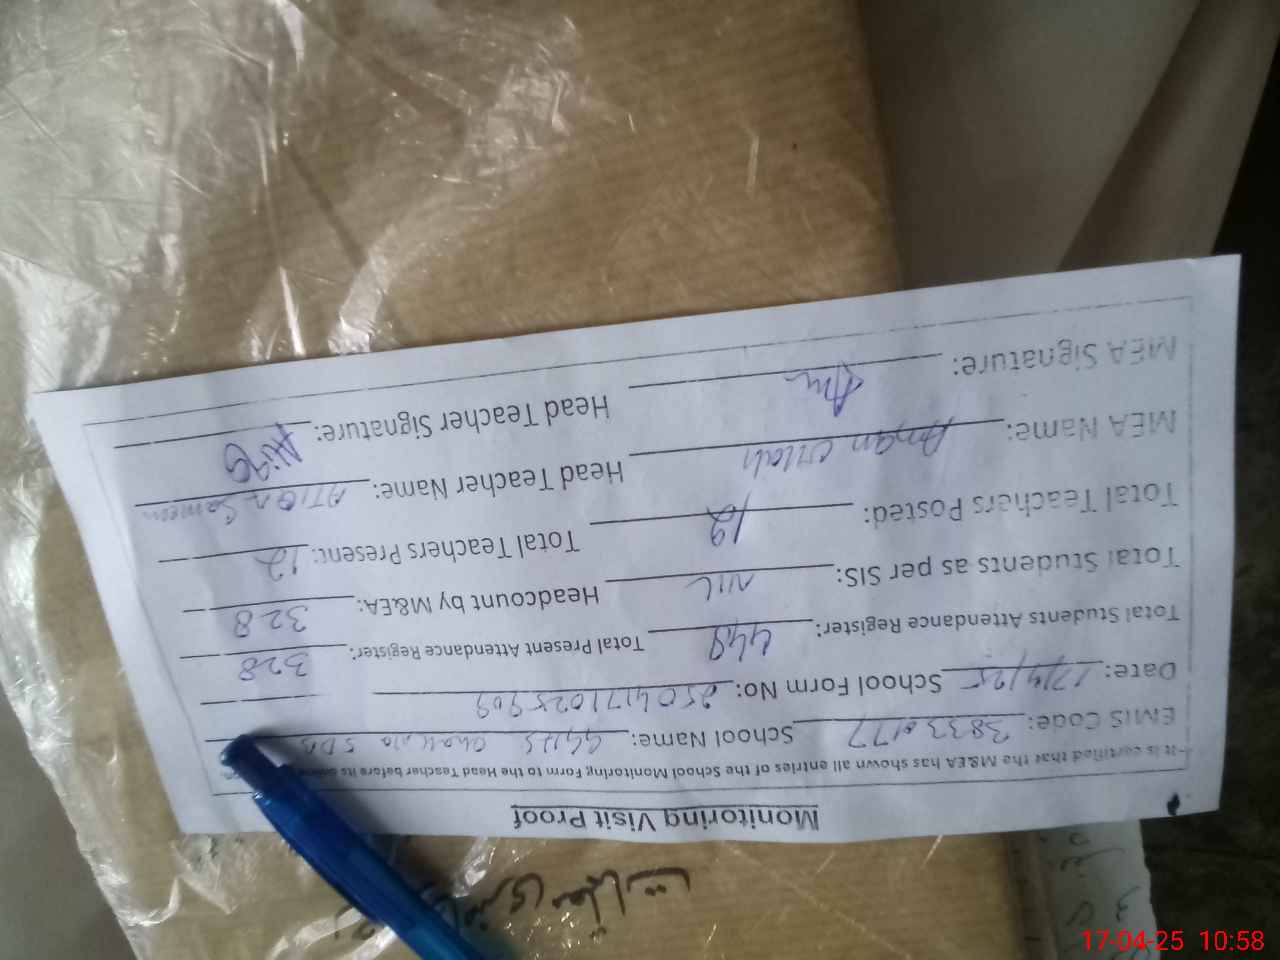 Monitoring Visit Proof
It is certified that the M&EA has shown all entries of the School Monitoring Form to the Head Teacher before its online
EMIS Code: 38330177 School Name: GGHS Chak No 5 DB
Date: 17/4/25 School Form No: 2504171025909
Total Students Attendance Register: 448 Total Present Attendance Register: 328
Total Students as per SIS: NIL Headcount by M&EA: 328
Total Teachers Posted: 12 Total Teachers Present: 12
MEA Name: Aman ullah Head Teacher Name: ATIQA Sameen
MEA Signature: Head Teacher Signature: Atiqa
17-04-25 10:58